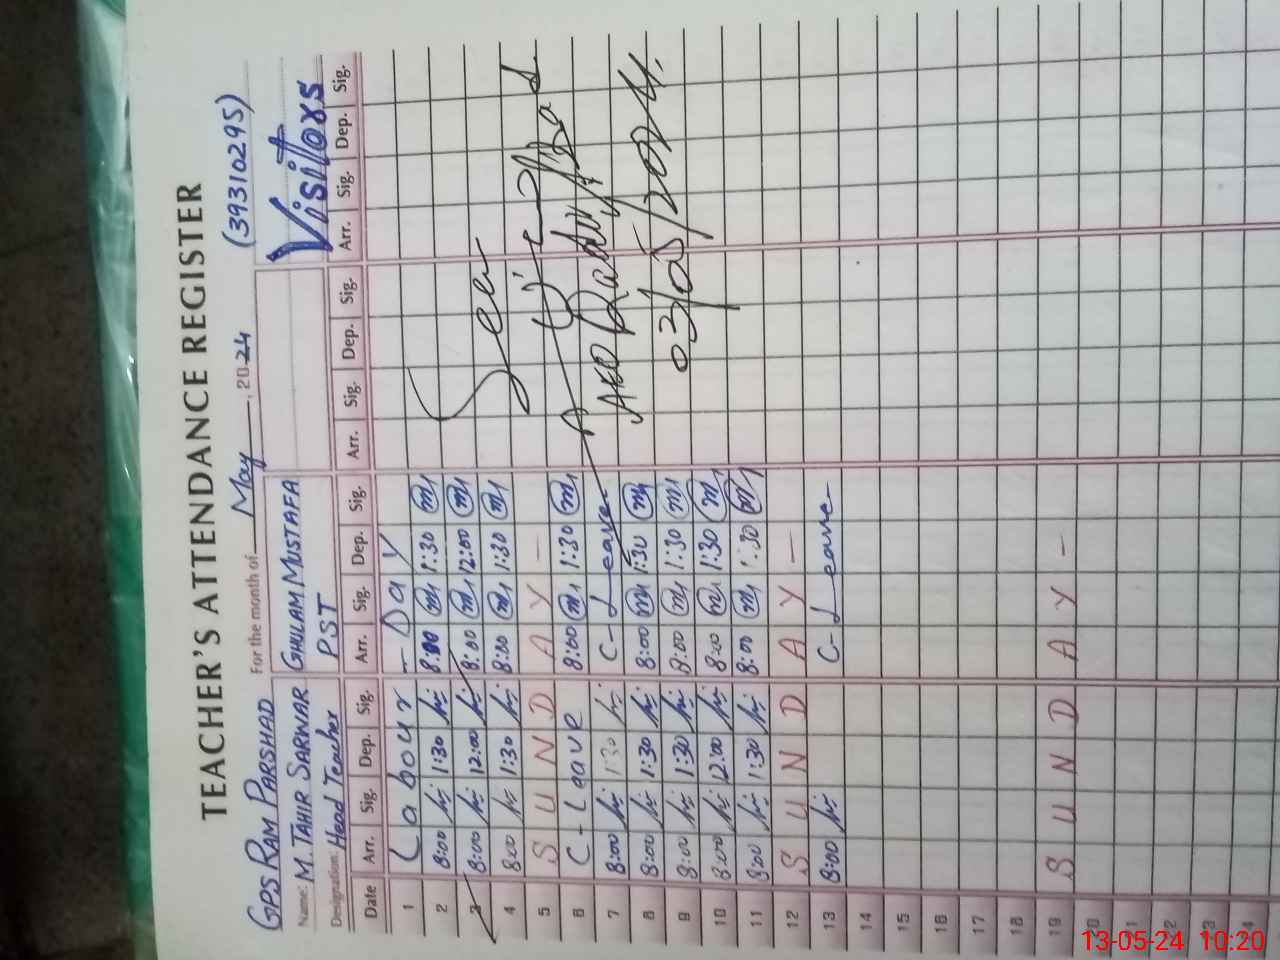 TEACHER'S ATTENDANCE REGISTER
GPS RAM PARSHAD For the month of May, 2024 (39310295)
Name: M. TAHIR SARWAR GHULAM MUSTAFA Visitors
Designation: Head Teacher PST
Date Arr. Sig. Dep. Sig. Arr. Sig. Dep. Sig. Arr. Sig. Dep. Sig. Arr. Sig. Dep. Sig.
1 Labour - Day
2 8:00 1:30 8:00 1:30
3 8:00 12:00 8:00 12:00
4 8:00 1:30 8:00 1:30
5 SUNDAY -
6 C-Leave 8:00 1:30
7 8:00 1:30 C-Leave
8 8:00 1:30 8:00 1:30
9 8:00 1:30 8:00 1:30
10 8:00 12:00 8:00 1:30
11 8:00 1:30 8:00 1:30
12 SUNDAY -
13 8:00 C-Leave
14
15
16
17
18
19 SUNDAY -
20
21
22
23
24
Seen
AEO
03/05/2024.
13-05-24 10:20